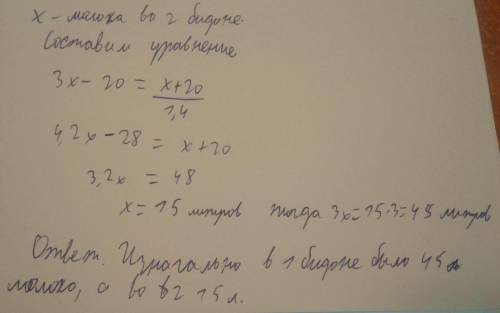 x - молока во 2 бидоне
Составим уравнение
3x - 20 = x+20 / 1,4
4,2x - 28 = x + 20
3,2x = 48
x = 15 литров тогда 3x = 15·3 = 45 литров
Ответ. Изначально в 1 бидоне было 45 л
молоко, а во в 2 15 л.